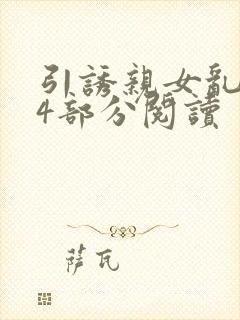 引誘親女亂
4部分閱讀
薩瓦